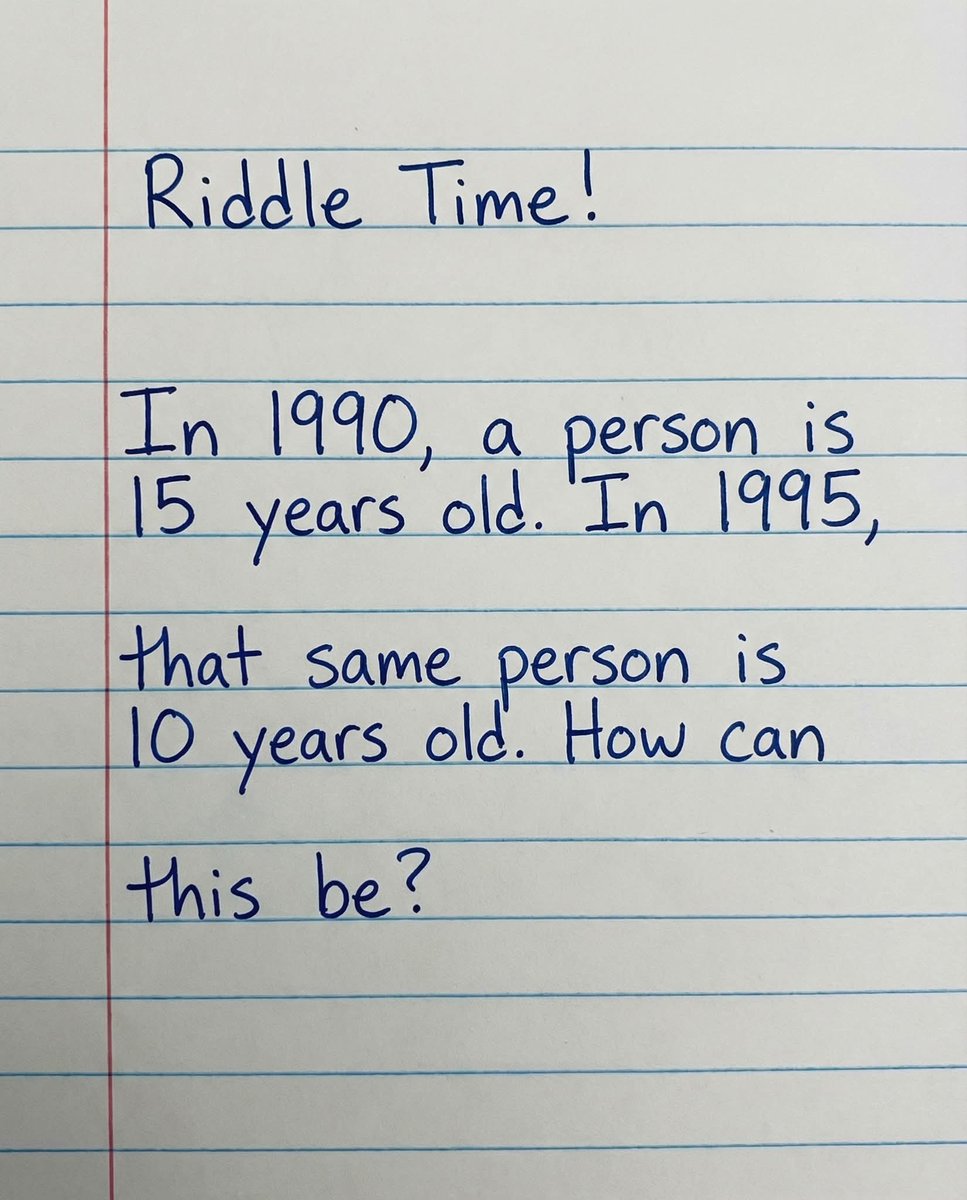 Riddle Time!
In 1990, a person is
15 years old. In 1995,
that same person is
10 years old. How can
this be?